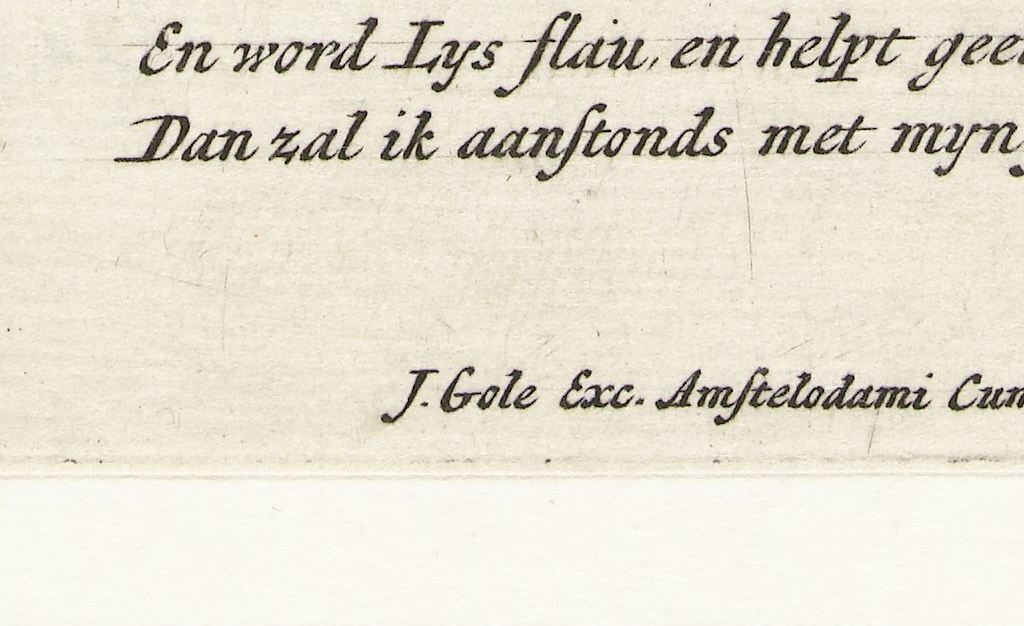 En word Lys flau, en helpt gee
Dan zal ik aanſtonds met myn
J. Gole Exc. Amſtelodami Cum